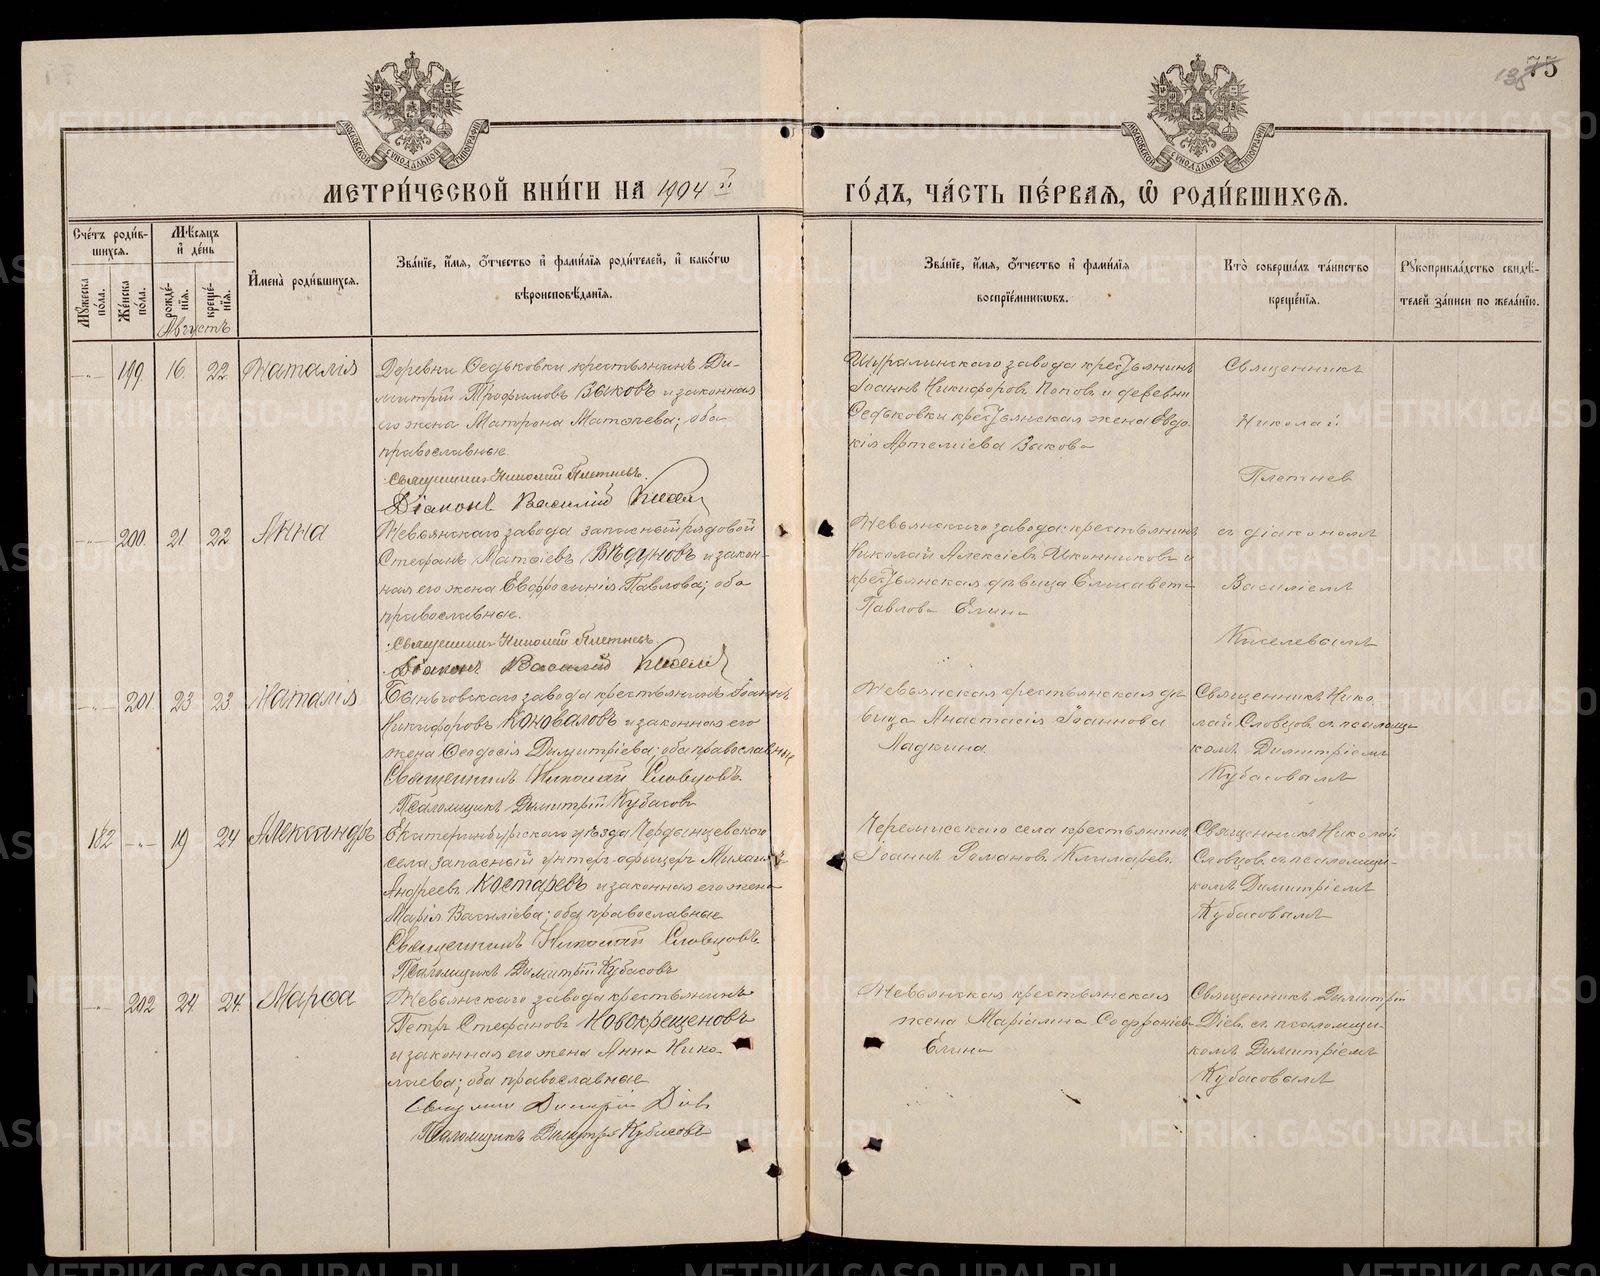 135 75
МЕТРИ́ЧЕСКОЙ КНИ́ГИ НА 1904 й
ГО́ДЪ, ЧА́СТЬ ПЕ́РВАЯ, Ѡ РОДИ́ВШИХСЯ.
Сче́тъ роди́вшихся.
Мѣ́сяцъ и де́нь
Мꙋ́жеска по́ла.
Же́нска по́ла.
рожде́нїя.
креще́нїя.
Августъ
И҆мена̀ роди́вшихся.
Зва́нїе, и҆́мя, ѻ҆́тчество и҆ фами́лїя роди́телей, и҆ како́гѡ
вѣроисповѣ́данїя.
Зва́нїе, и҆́мя, ѻ҆́тчество и҆ фами́лїя
воспрїе́мникѡвъ.
Кто̀ соверша́лъ та́инство
креще́нїя.
Рꙋкоприкла́дство свидѣ́-
телей за́писи по жела́нїю.
199. 16. 22. Наталія
Деревни Ѳедьковки крестьянинъ Ди-
митрій Трофимовъ Зыковъ и законная
его жена Матрона Матѳеева; оба
православные.
Священникъ Николай Плетневъ.
Діаконъ Василій Киселев
Шуралинскаго завода крестьянинъ
Іоаннъ Никифоровъ Поповъ и деревни
Ѳедьковки крестьянская жена Евдо-
кія Артеміева Зыкова
Священникъ
Николай
Плетнев
200. 21 22 Анна
Невьянскаго завода запасный рядовой
Стефанъ Матѳіевъ Вѣдуновъ и закон-
ная его жена Евфросинія Павлова; оба
православные.
Священникъ Николай Плетневъ
Діаконъ Василій Киселев
Невьянскаго завода: крестьянинъ
Николай Алексіевъ Иконниковъ и
крестьянская дѣвица Елисавета
Павлова Елина
съ діакономъ
Василіемъ
Киселевымъ
201 23 23 Наталія
Быньговскаго завода крестьянинъ Іоаннъ
Никифоровъ Коноваловъ и законная его
жена Ѳеодосія Димитріева; оба православные
Священникъ Николай Словцовъ.
Псаломщикъ Димитрій Кубасовъ
Невьянская крестьянская дѣ-
вица Анастасія Іоаннова
Ладкина
Священникъ Нико-
лай Словцов съ псаломщи-
комъ Димитріемъ
Кубасовымъ
182 19 24 Александръ
Екатеринбургскаго уѣзда Чердынцевскаго
села запасный унтеръ-офицеръ Михаилъ
Андреевъ Костаревъ и законная его жена
Марія Василіева; оба православные
Священникъ Николай Словцовъ.
Псаломщикъ Димитрій Кубасовъ
Черемисскаго села крестьянинъ
Іоаннъ Романовъ Климаревъ.
Священникъ Николай
Словцов съ псаломщи-
комъ Димитріемъ
Кубасовымъ
202 24 24. Марѳа
Невьянскаго завода крестьянинъ
Петръ Стефановъ Новокрещеновъ
и законная его жена Анна Нико-
лаева; оба православные
Священникъ Димитрій Діевъ
Псаломщикъ Димитрій Кубасовъ
Невьянская крестьянская
жена Маріамна Софроніева
Елина
Священникъ Димитрій
Діев съ псаломщи-
комъ Димитріемъ
Кубасовымъ
METRIKI.GASO-URAL.RU